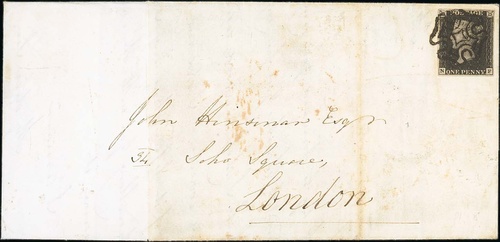 POSTAGE
ONE PENNY
John Hinsman Esqr
34 Soho Square,
London